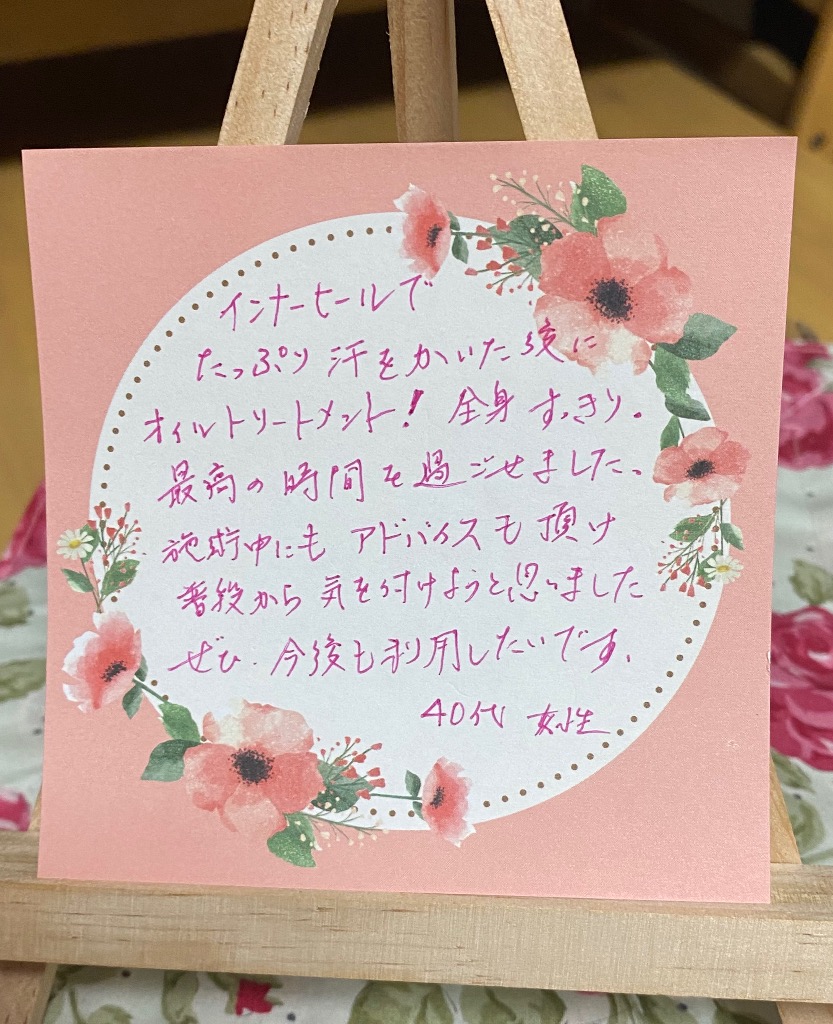 インナーヒールで
たっぷり汗をかいた後に
オイルトリートメント! 全身すっきり。
最高の時間を過ごせました。
施術中にも アドバイスも頂け
普段から気を付けようと思いました
ぜひ、今後も利用したいです。
40代 女性